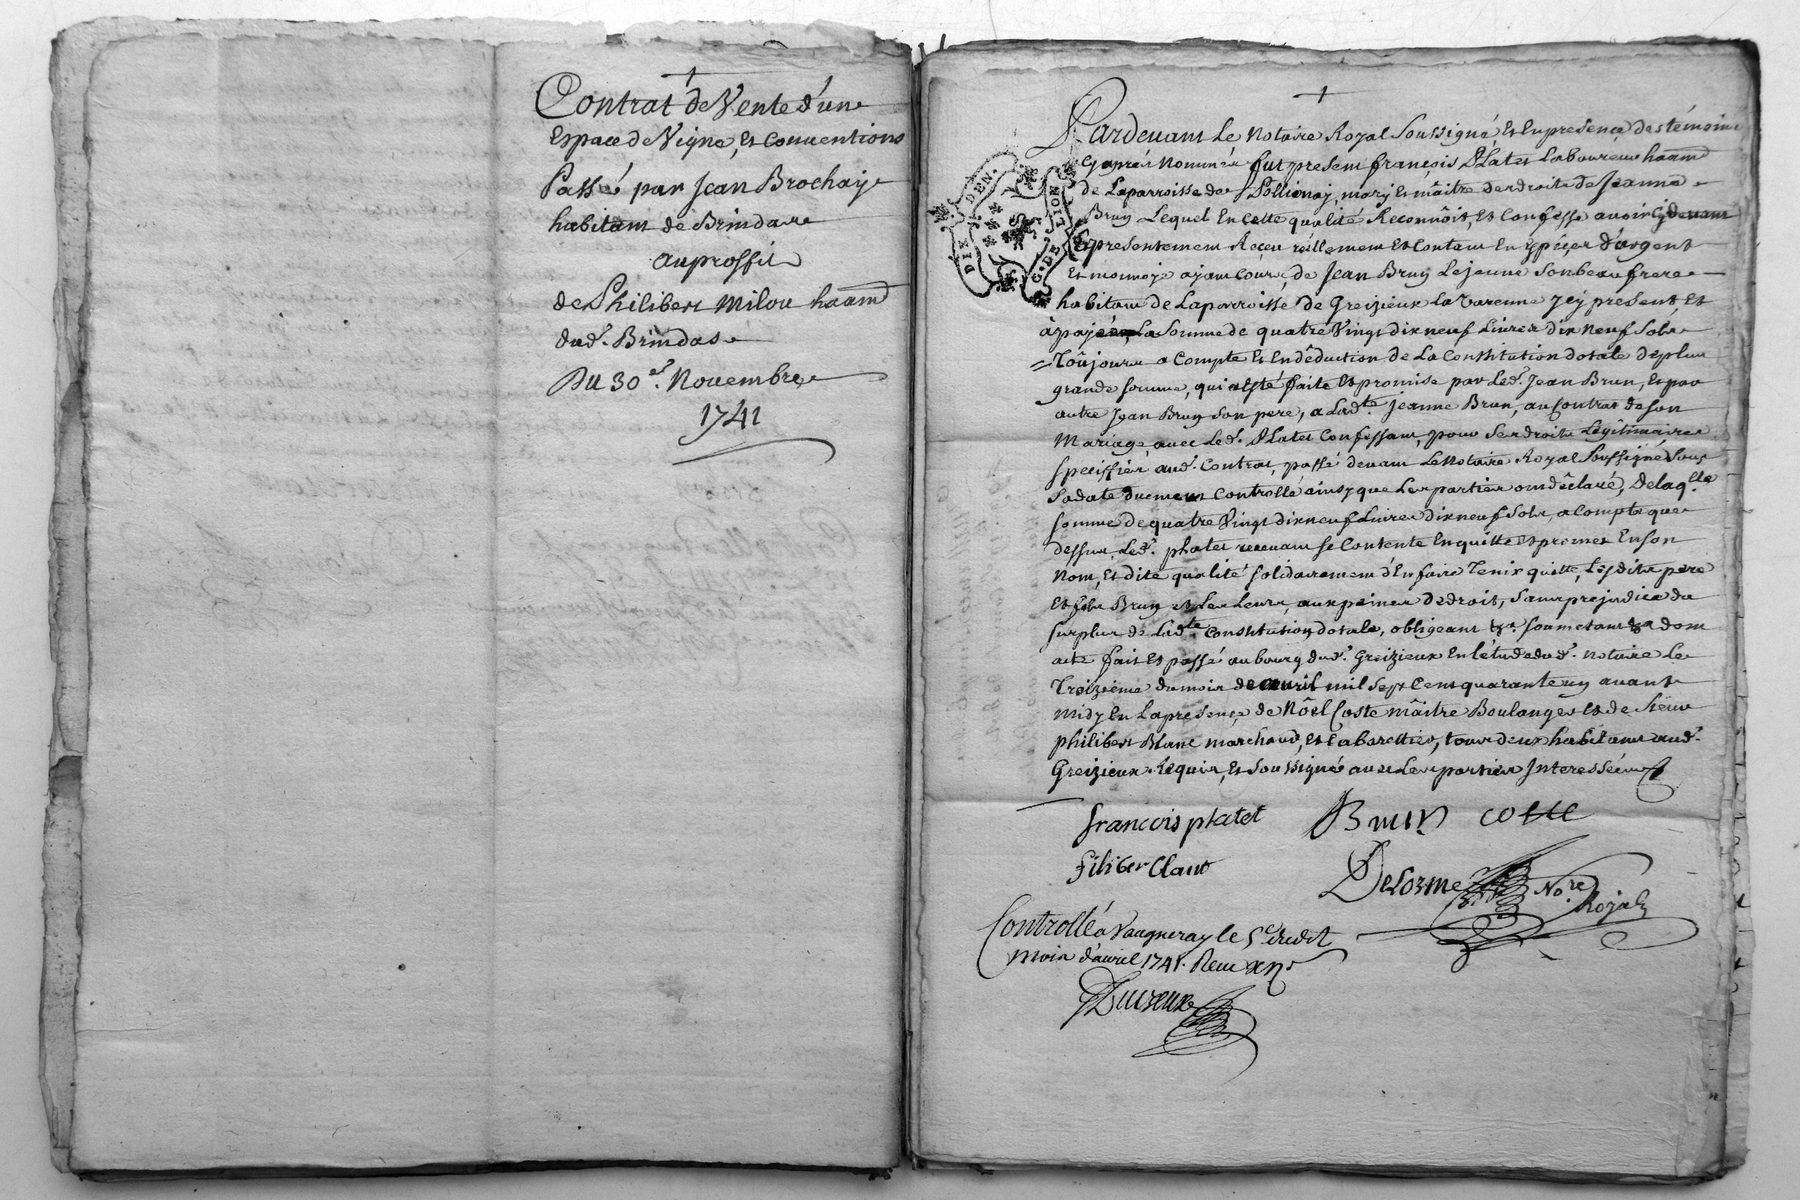 Contrat de Vente d'une
Espace de Vigne, Et Conventions
Passé par Jean Brochay
habitant de Brindas
au proffit
de Philibert Milou haant
dud. Brindas
Du 30e. Novembre
1741
Pardevant Le Notaire Royal Soussigné Et En presence des témoins
Cy aprés Nommés fut present françois Platet Laboureur haant
de La parroisse de Pollionay, mary Et maître des droits de Jeanne
Brun Lequel En Cette qualité Reconnoît, Et Confesse avoir Cy devant
Et presentement Receu réellement Et Contant En Espéces d'argent
Et monnoye ayant Cours, de Jean Brun Le jeune Son beau frere
habitant de La parroisse de Greizieux La Varenne Jcy present Et
La Somme de quatre Vingt dix neuf Livres dix Neuf Sols
Toûjours a Compte Et En déduction de La Constitution dotale de plus
grande somme, qui a Esté faite Et promise par Led. Jean Brun, Et par
autre Jean Brun Son pere, a Ladte. Jeanne Brun, au Contrat de Son
Mariage, avec Led. Platet Confessant, pour Ses droits Légitimaires
specifiés aud. Contrat, passé devant Le Notaire Royal Soussigné Sous
Sa date düement Controllé ainsy que Les parties ont déclaré, De laqlle
somme de quatre Vingt dix neuf Livres dix neuf Sols, a Compte que
dessus, Led. platet recevant se Contente En quitte Et promet En son
Nom, Et dite qualité solidairement d'En faire Tenir quitte, Lesdits pere
Et fils Brun et Les Leurs, aux peines de droit, Sans prejudice du
surplus de Ladte Constitution dotale, obligeant &a. soumetant &a dont
acte fait Et passé au bourg dud. Greizieux En l'étude dud. Notaire Le
Troizieme du mois de avril mil Sept Cent quarante un avant
midy En La presence de Nôel Coste mâitre Boulanger Et de Sieur
philibert Blanc marchand, Et Cabarettier, tous deux habitants aud.
Greizieux Requis, Et Soussignés avec Les parties Interessées
françois platet Brun coste
filiber Clanc
Delorme Nore Royal
Controllé a Vaugneray le 5e dudit
mois d'avril 1741. Recu